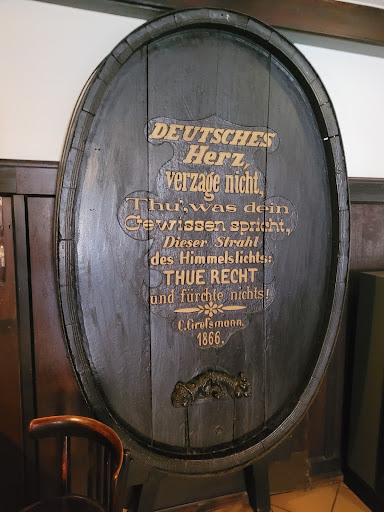 DEUTSCHES
Herz,
verzage nicht,
Thu', was dein
Gewissen spricht,
Dieser Strahl
des Himmelslichts:
THUE RECHT
und fürchte nichts!
C. Großmann,
1866.